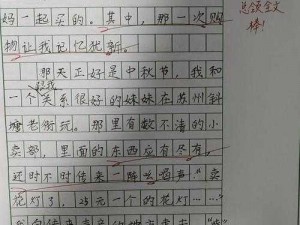 妈一起买的。其中，那一次购
物让我记忆犹新。
总领全文
棒！
那天正好是中秋节，我和
一个关系很好的妹妹在苏州斜
塘老街玩。那里有数不清的小
卖部，里面的东西应有尽有。
还时不时传来一阵幺喝声“卖
花灯了，25元一个的花灯……